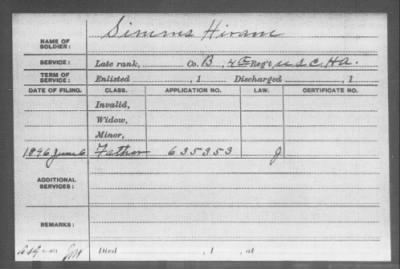 Simms Hiram
NAME OF SOLDIER:
SERVICE: Late rank, Co. B, 4th Reg't U.S.C.H.A.
TERM OF SERVICE: Enlisted , 1 Discharged , 1
DATE OF FILING. CLASS. APPLICATION NO. LAW. CERTIFICATE NO.
Invalid,
Widow,
Minor,
1896 June 6 Father 635353 J
ADDITIONAL SERVICES:
REMARKS:
Died , 1 , at